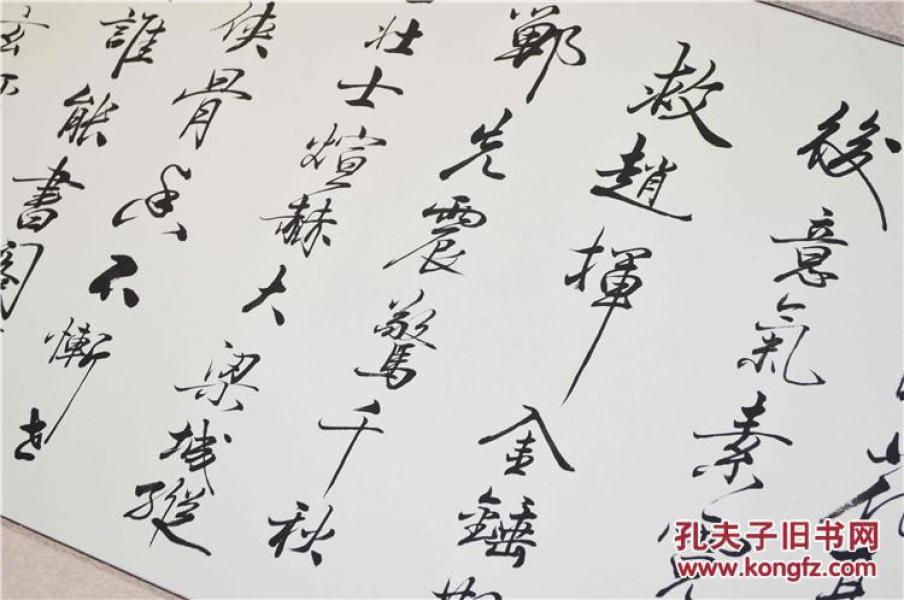 花耳
後意氣素霓
救趙揮金錘邯
鄲先震驚千秋
壯士煊赫大梁城縱
俠骨香不慚世
誰能書閣
玄
孔夫子旧书网
www.kongfz.com